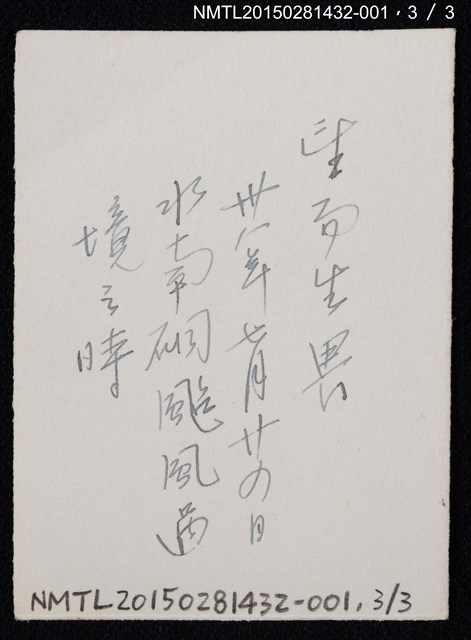 NMTL20150281432-001，3 / 3
望而生畏
卅八年七月廿四日
水南硐颱風過
境之時
NMTL20150281432-001, 3/3